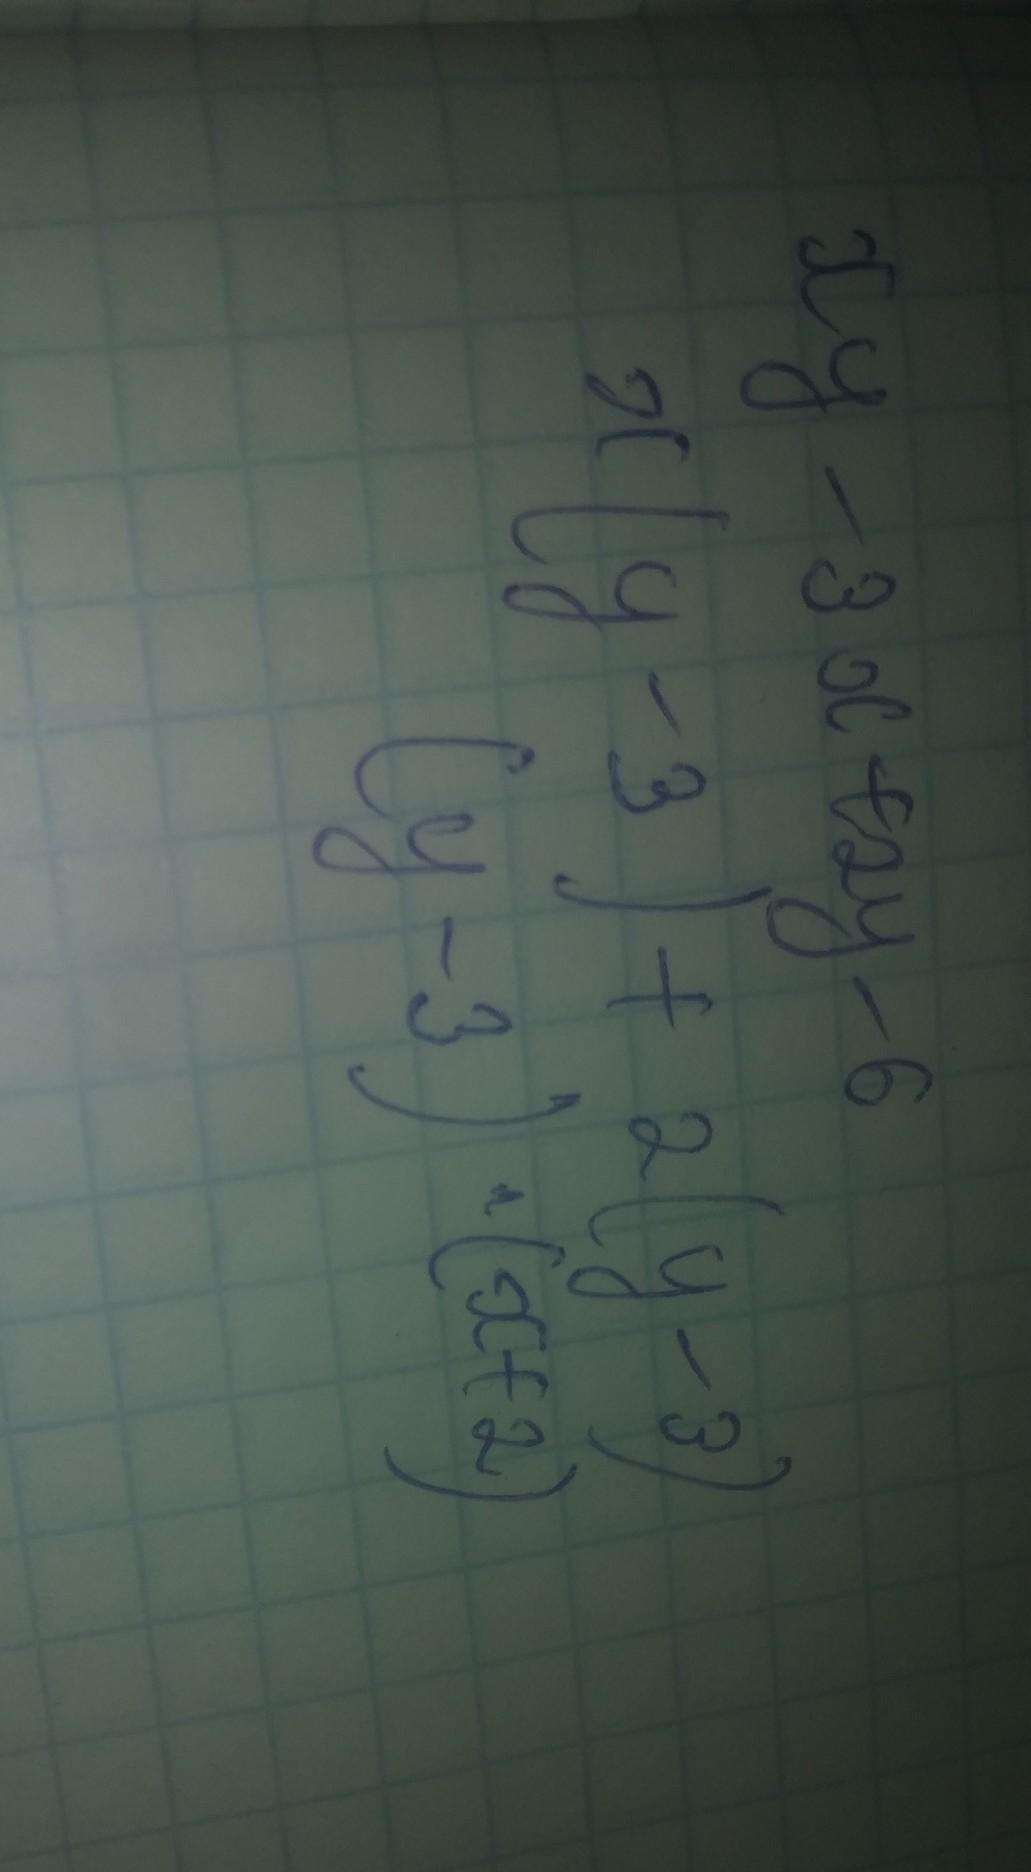 xy - 3x + 2y - 6
x(y - 3) + 2(y - 3)
(y - 3) · (x + 2)